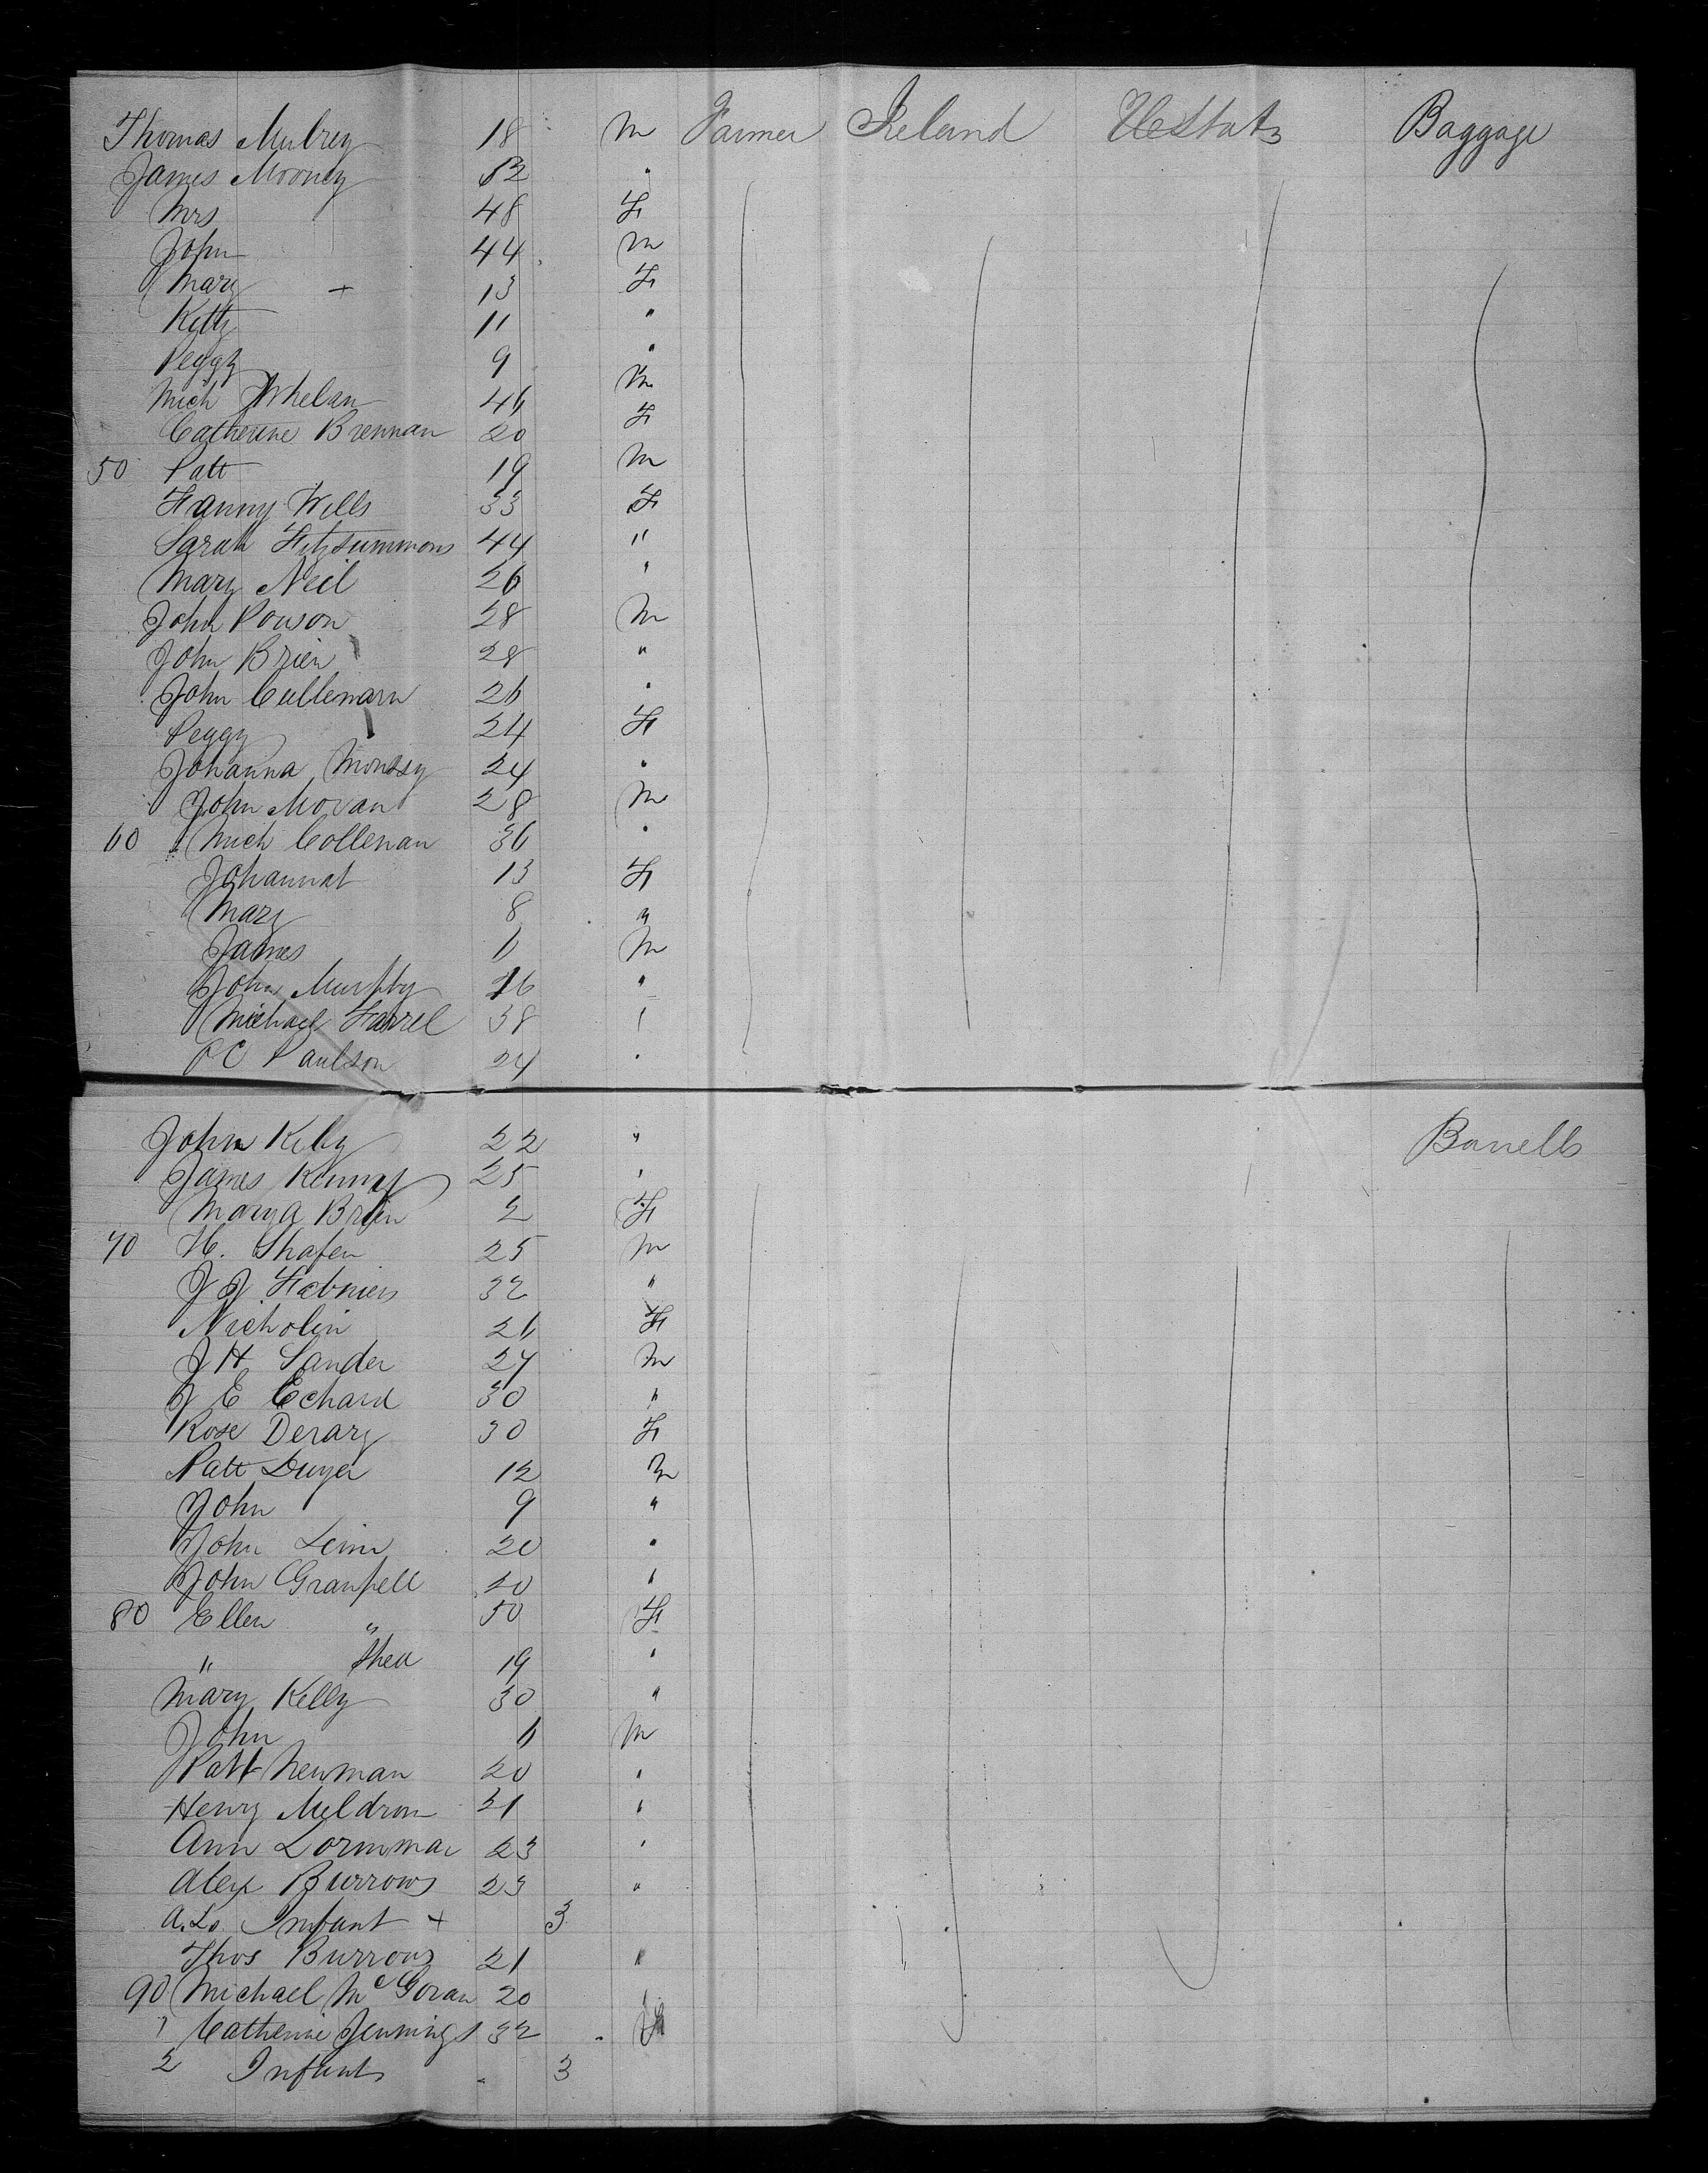 Thomas Mulrey 18 m Farmer Ireland U States Baggage
James Mooney 52 "
Mrs 48 F
John 44 m
Mary + 13 F
Kitty 11 "
Peggy 9 "
Mich Whelan 46 m
Catherine Brennan 20 F
50 Patt 19 m
Fanny Wills 33 F
Sarah Fitzsummons 44 "
Mary Neil 26 "
John Powson 28 m
John Brien 28 "
John Cullenan 26 "
Peggy 24 F
Johanna 24 "
John Moran 28 m
60 Mich Collenan 36 "
Johannah 13 F
Mary 8 "
James 6 m
John Murphy 26 "
Michael Farrel 38 "
P C Paulson 24 "
John Kelly 22 " Barrells
James 25 "
Mary A Brien 2 F
70 H. Shafen 25 m
J J 32 "
Nicholin 26 F
J H Sander 27 m
J E Echard 30 "
Rose Derary 30 F
Patt Dwyer 12 m
John 9 "
John 20 "
John Granfell 20 "
80 Ellen " 50 F
" Shea 19 "
Mary Kelly 30 "
John 6 m
Patt Newman 20 "
Henry Meldrom 21 "
Ann 23 "
Alex Burrows 23 "
A. L. Infant + 3
Thos Burrows 21 "
90 Michael McGovan 20 "
1 Catherine Jennings 32 F
2 Infant 3